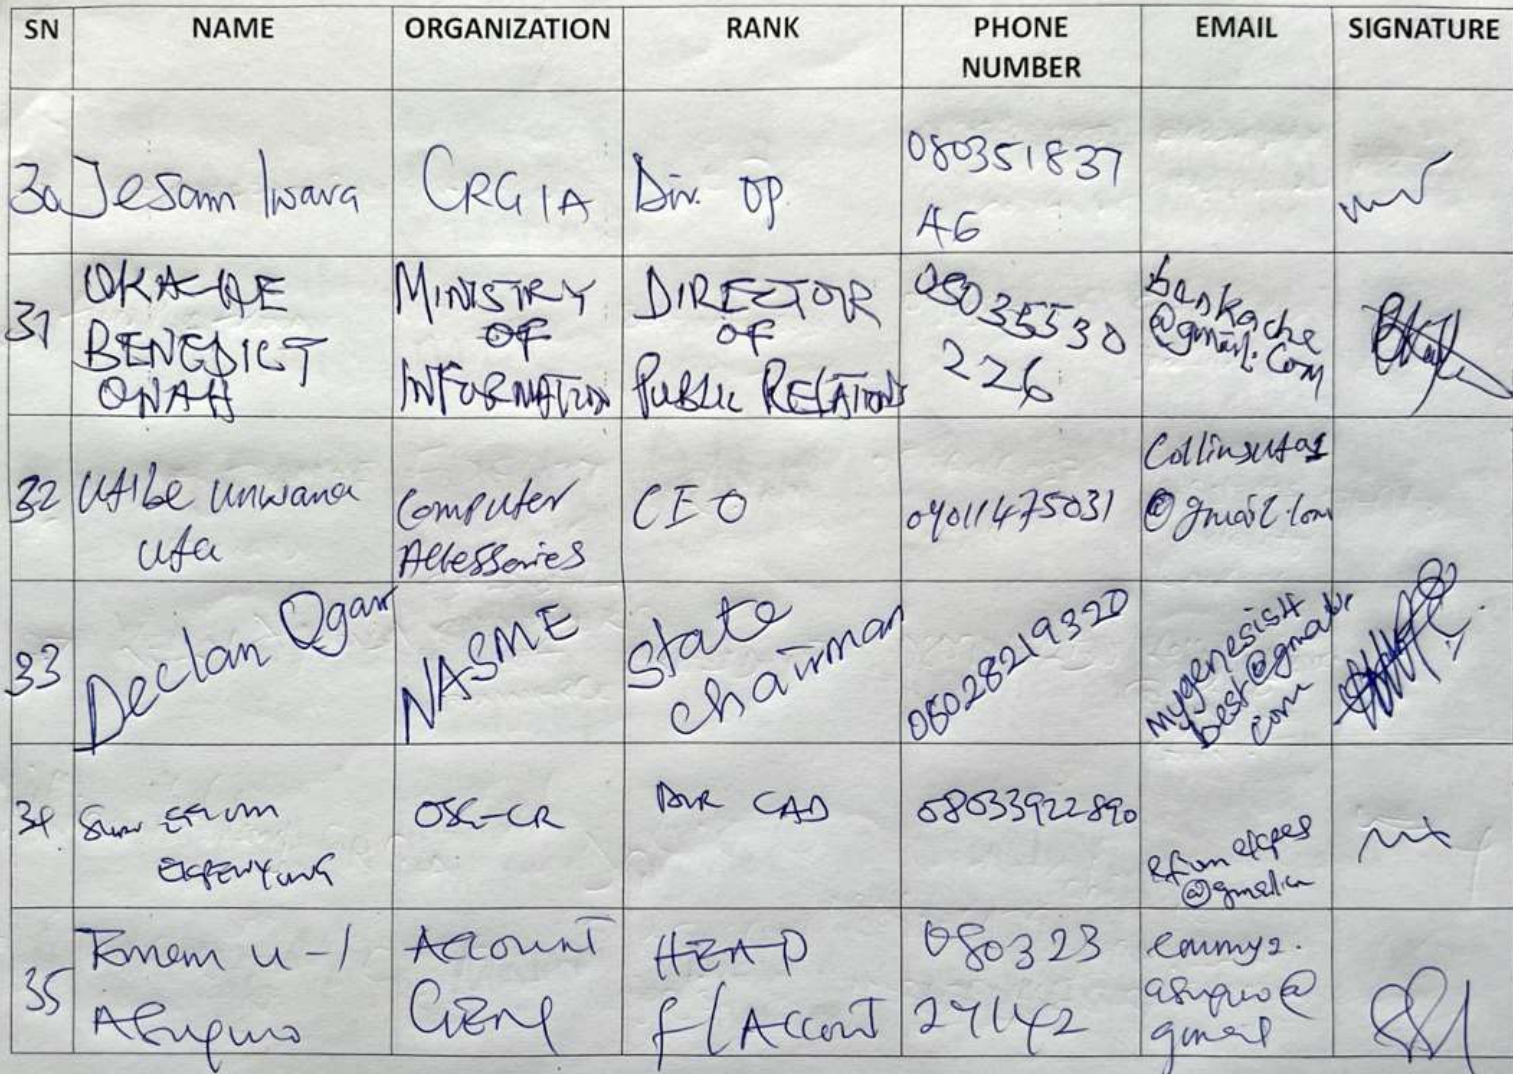 SN NAME ORGANIZATION RANK PHONE NUMBER EMAIL SIGNATURE
30 Jesam Iwara CRGIA Dir. OP. 080351837
46
31 OKACHE BENEDICT ONAH MINISTRY OF INFORMATION DIRECTOR OF PUBLIC RELATIONS 08035530
226 benkache
@gmail.com
32 Utibe Unwana
Uta Computer
Accessories CEO 09011475031 Collinsuta1
@gmail.com
33 Declan Ogar NASME State
Chairman 08028219320 mygenesis4
best@gmail.
com
34 EKPENYONG OSG-CR DIR CAD 08033922890
@gmail.
35 Emem U-
Asuquo Account
Genl HEAD
F/Account 080323
27142
asuquo@
gmail